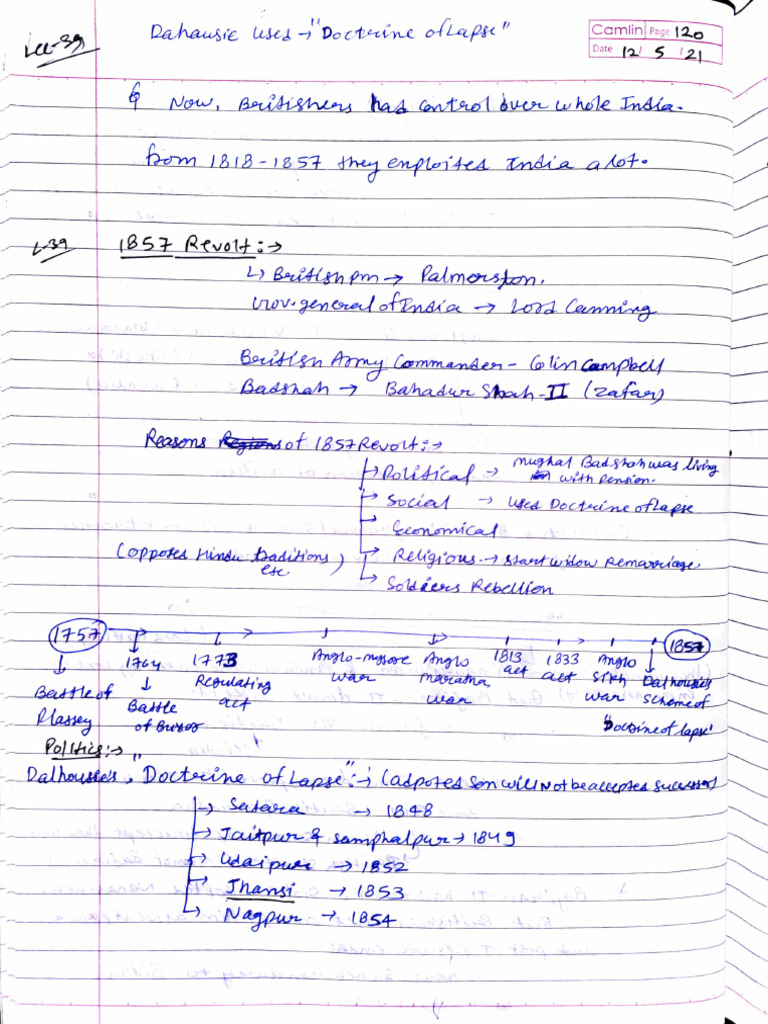 Lec-39
Dahausie uses → "Doctrine of Lapse"
Camlin Page 120
Date 12 / 5 / 21
Now, Britishers has control over whole India.
from 1818-1857 they enploited India a lot.
L-39 1857 Revolt:→
↳ British pm → Palmerston.
Gov. general of India → Lord Canning
British Army Commander - Colin Campbell
Badshah → Bahadur Shah-II (zafar)
Reasons Regions of 1857 Revolt:→
→ Political → mughal Badshah was living
with pension.
→ Social → used Doctrine of Lapse
→ Economical
(opposed Hindu traditions etc) → Religious → start widow Remarriage
↳ Soldiers Rebellion
1757 1764 1773 Anglo-mysore war Anglo maratha war 1813 act 1833 act Anglo sikh war 1857
↓ Battle of Plassey
↓ Battle of Buxar
Regulating act
↓ Dalhousie's scheme of "Doctrine of lapse"
Politics:→
Dalhousie's, "Doctrine of Lapse":→ (adpoted son will not be accepted successor)
→ Satara → 1848
→ Jaitpur & samphalpur → 1849
→ Udaipur → 1852
→ Jhansi → 1853
↳ Nagpur → 1854